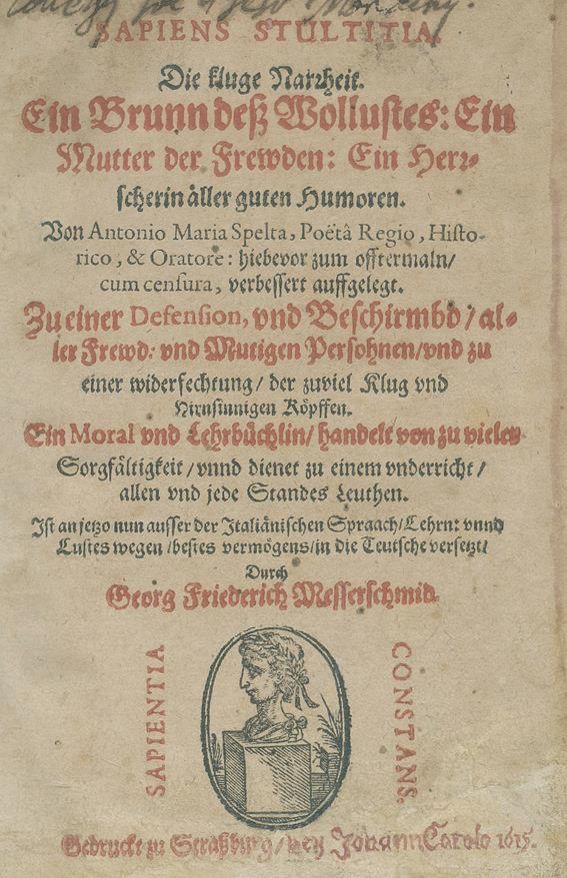 SAPIENS STULTITIA,
Die kluge Narrheit.
Ein Brunn deß Wollustes: Ein
Mutter der Frewden: Ein Herr-
scherin aller guten Humoren.
Von Antonio Maria Spelta, Poëtâ Regio, Histo-
rico, & Oratore: hiebevor zum offtermaln/
cum censura, verbessert auffgelegt.
Zu einer Defension, vnd Beschirmbd/ al-
ler Frewd: vnd Mutigen Persohnen/ vnd zu
einer widerfechtung/ der zuviel Klug vnd
Hirnsinnigen Köpffen.
Ein Moral vnd Lehrbüchlin/ handelt von zu vieler
Sorgfältigkeit/ vnnd dienet zu einem vnderricht/
allen vnd jede Standes Leuthen.
Ist an jetzo nun ausser der Italiänischen Spraach/ Lehrn: vnnd
Lustes wegen/ bestes vermögens/ in die Teutsche versetzt/
Durch
Georg Friederich Messerschmid.
SAPIENTIA
CONSTANS.
Gedruckt zu Straßburg/ bey Johann Carolo 1615.